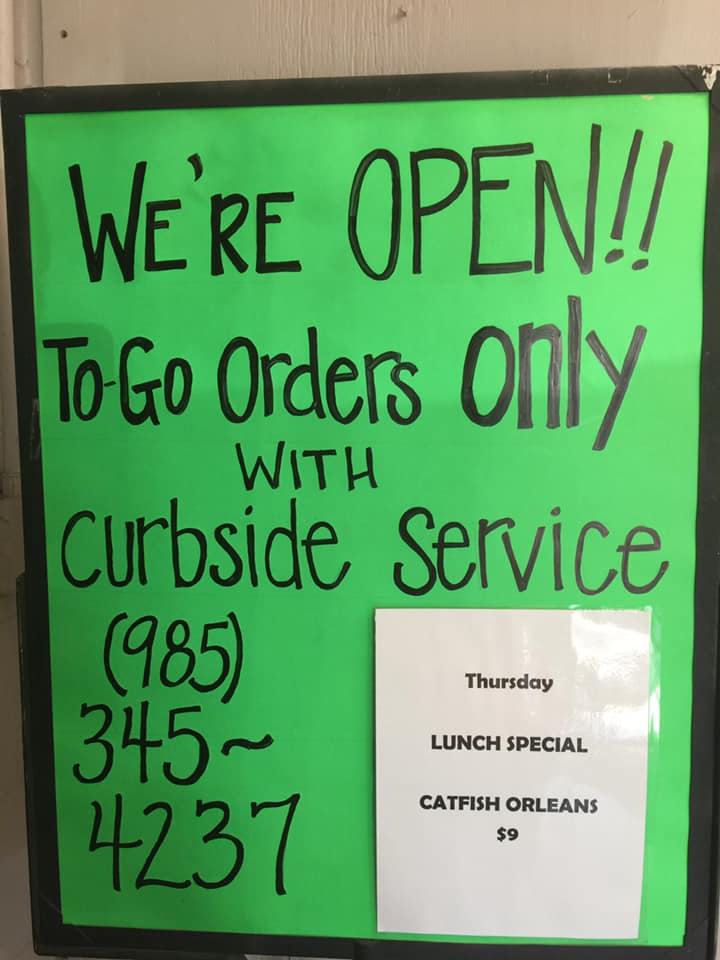 WE'RE OPEN!!
To-Go Orders only
WITH
Curbside Service
(985)
345~
4237
Thursday
LUNCH SPECIAL
CATFISH ORLEANS
$9